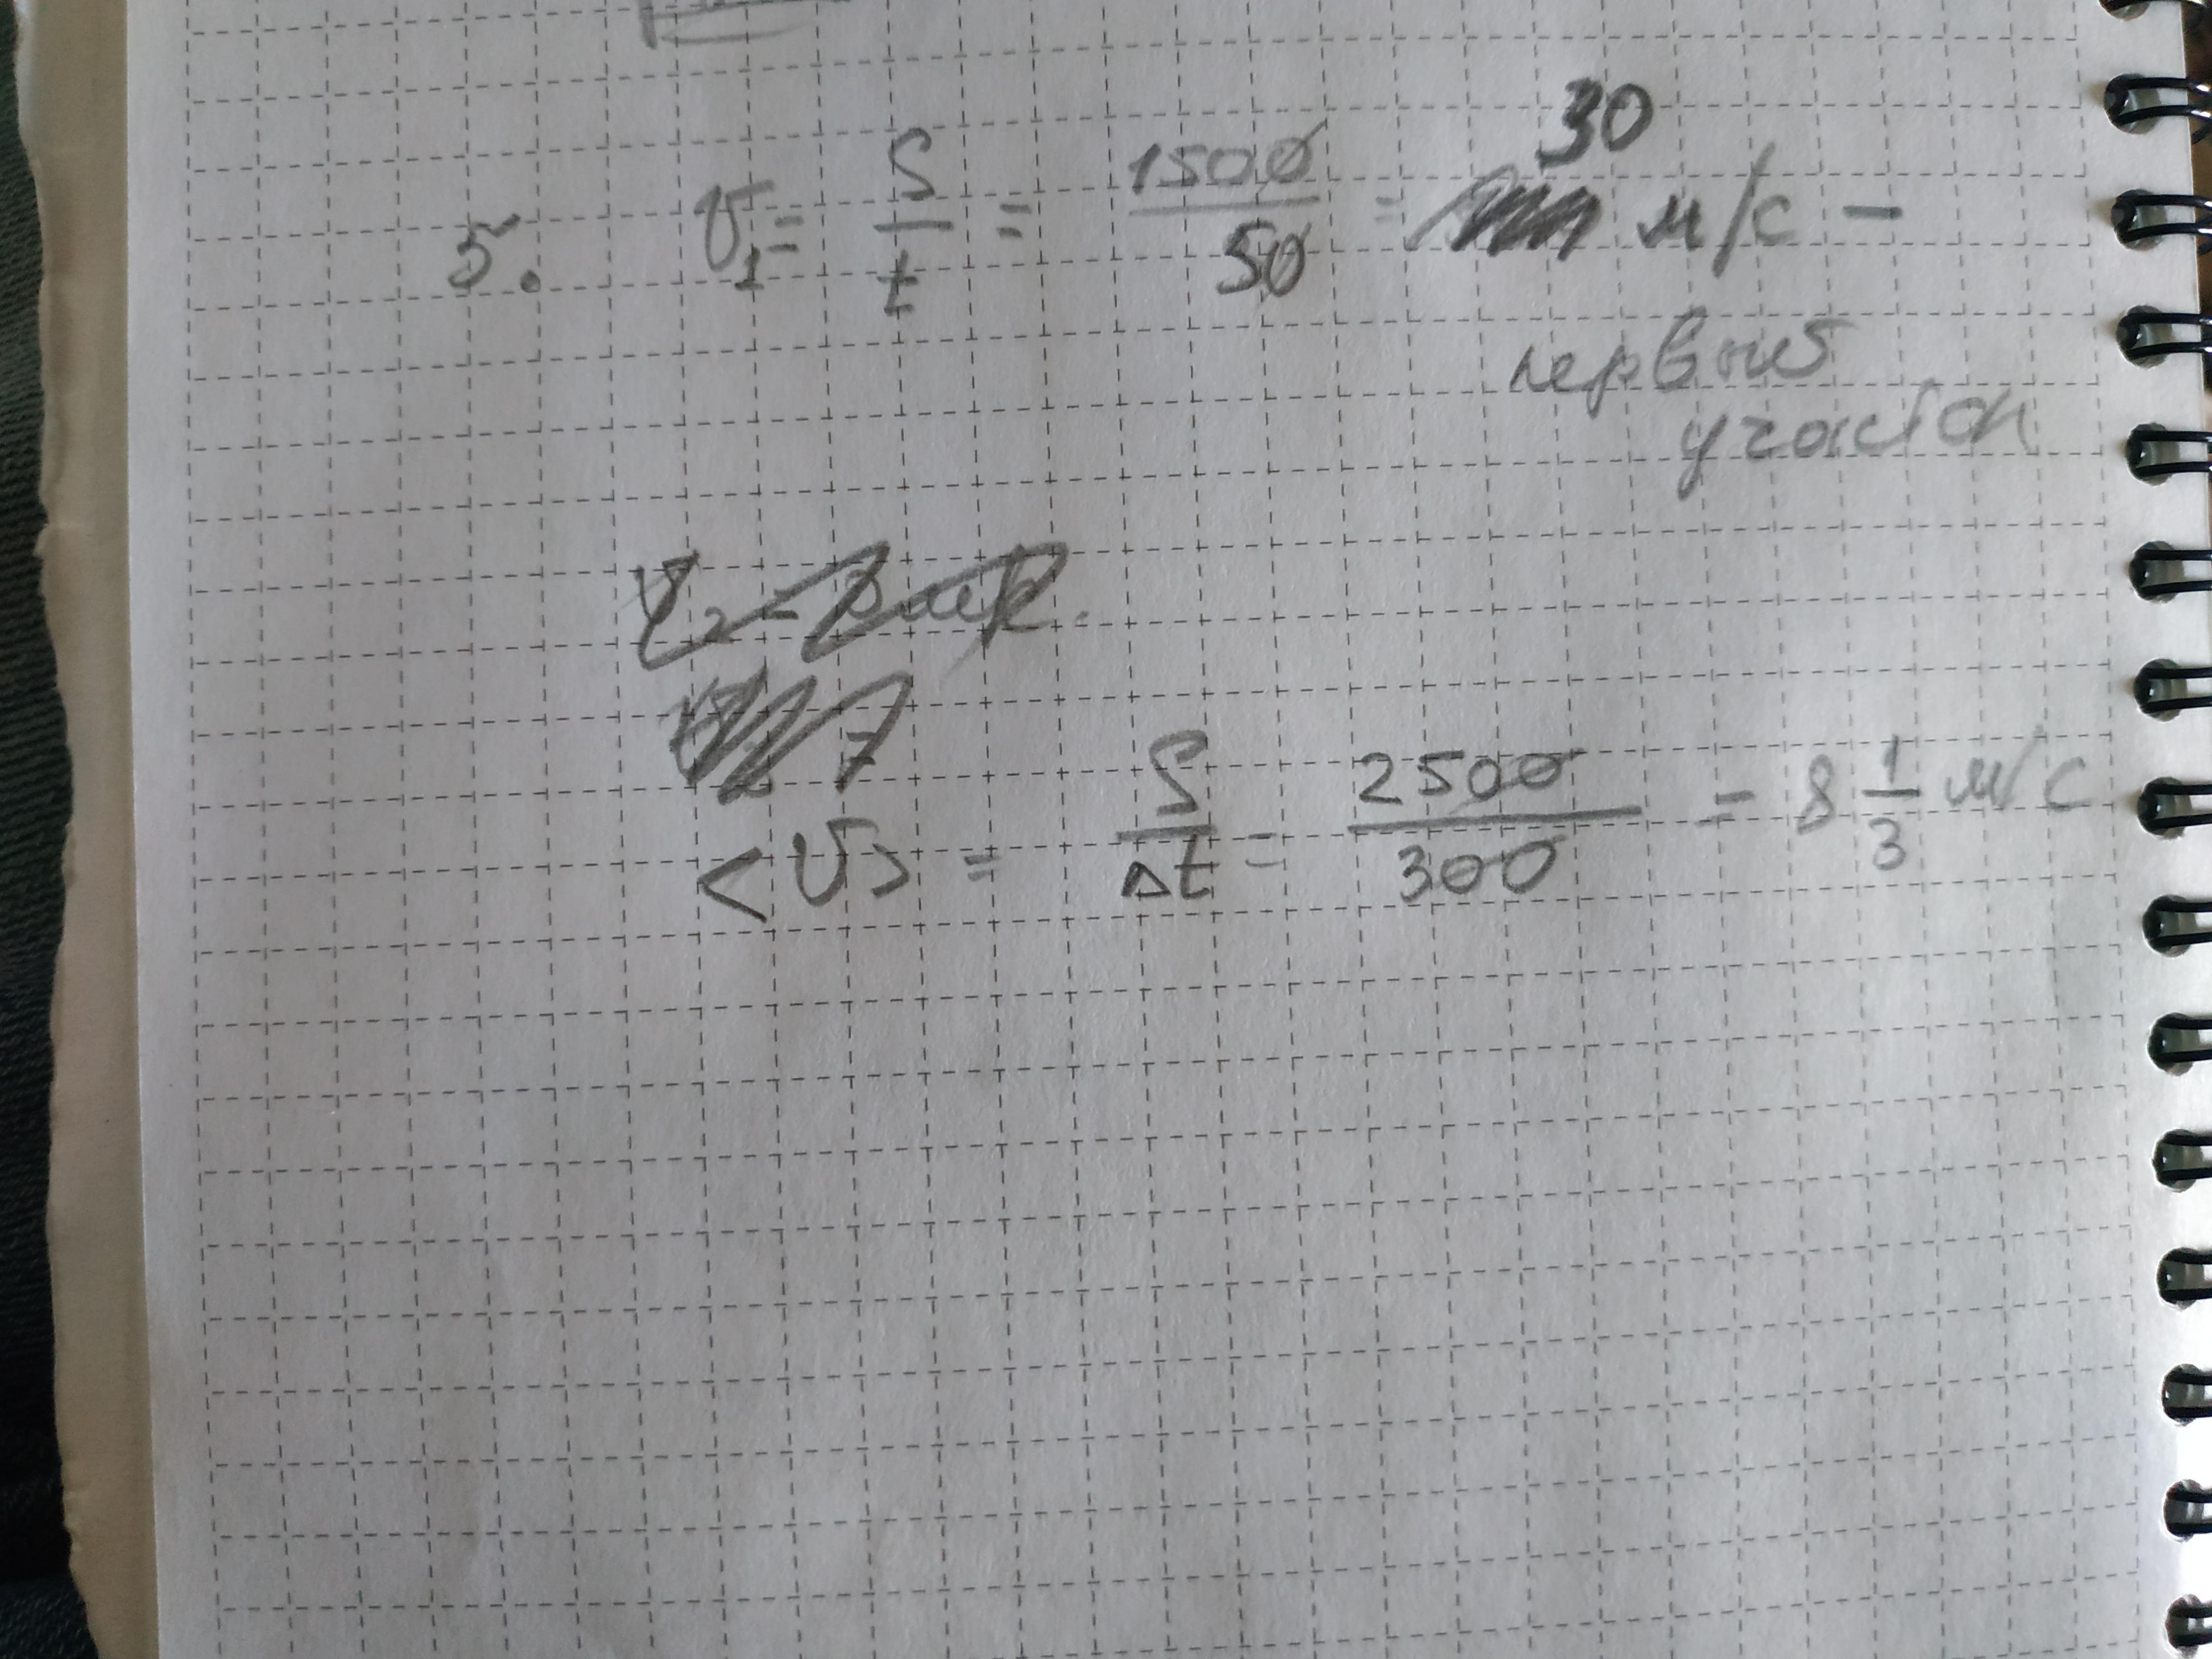 5. V₁ = S/t = 1500/50 = 30 м/с –
первый
участок
V₂ –
<V> = S/Δt = 2500/300 = 8 1/3 м/с